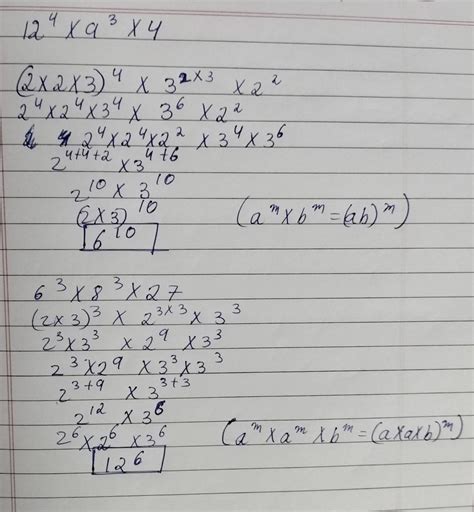 12⁴ × 9³ × 4
(2×2×3)⁴ × 3²ˣ³ × 2²
2⁴×2⁴×3⁴ × 3⁶ × 2²
2⁴×2⁴×2² × 3⁴×3⁶
2⁴⁺⁴⁺² × 3⁴⁺⁶
2¹⁰ × 3¹⁰
(2×3)¹⁰ (aᵐ×bᵐ=(ab)ᵐ)
6¹⁰
6³×8³×27
(2×3)³ × 2³ˣ³ × 3³
2³×3³ × 2⁹ × 3³
2³×2⁹ × 3³×3³
2³⁺⁹ × 3³⁺³
2¹² × 3⁶
2⁶×2⁶ × 3⁶ (aᵐ×aᵐ×bᵐ=(a×a×b)ᵐ)
12⁶